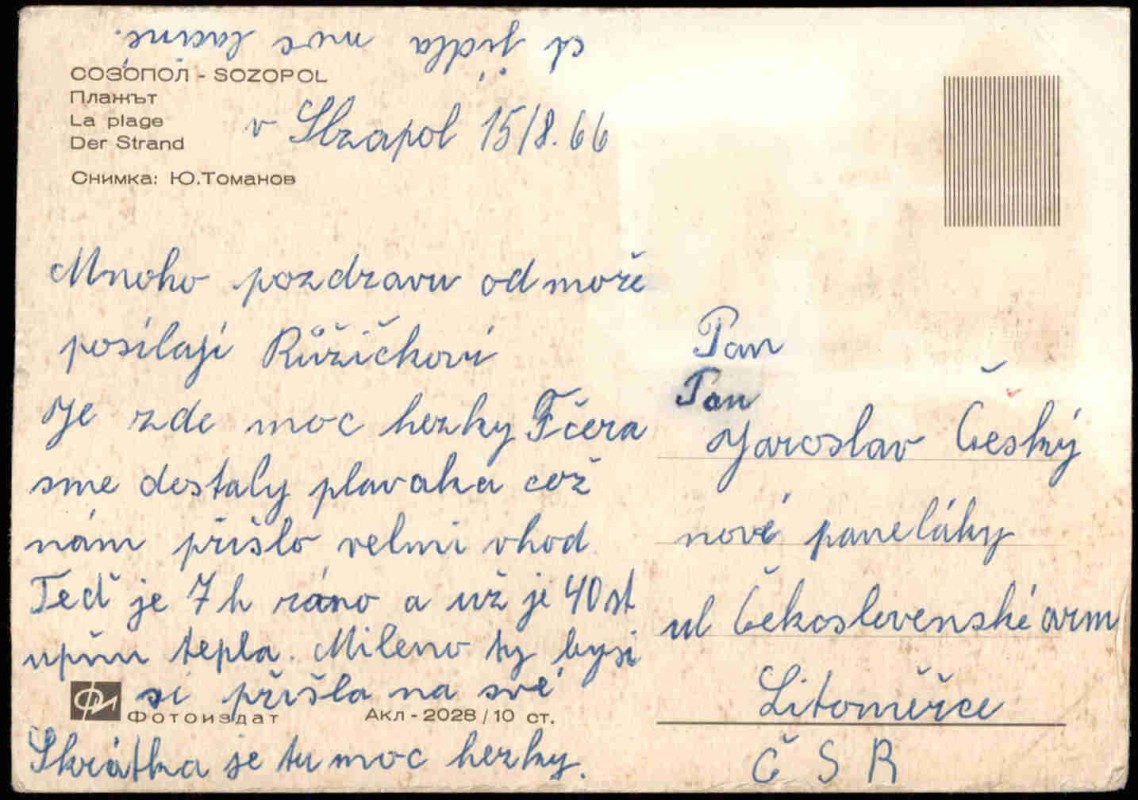 ct jídla moc laciné.
СОЗОПОЛ - SOZOPOL
Плажът
La plage
Der Strand
Снимка: Ю.Томанов
v Sozapol 15/8.66
Mnoho pozdravu od moře
posílají Růžičkovi
Je zde moc hezky Fčera
sme dostaly plavaka což
nám přišlo velmi vhod
Teď je 7 h ráno a už je 40 st
tepla. Mileno ty bysi
si přišla na své
Skrátka je tu moc hezky.
Фотоиздат
Акл-2028/10 ст.
Pan
Pan
Jaroslav Český
nové paneláky
ul Čekoslovenské arm
Litoměřce
Č S R